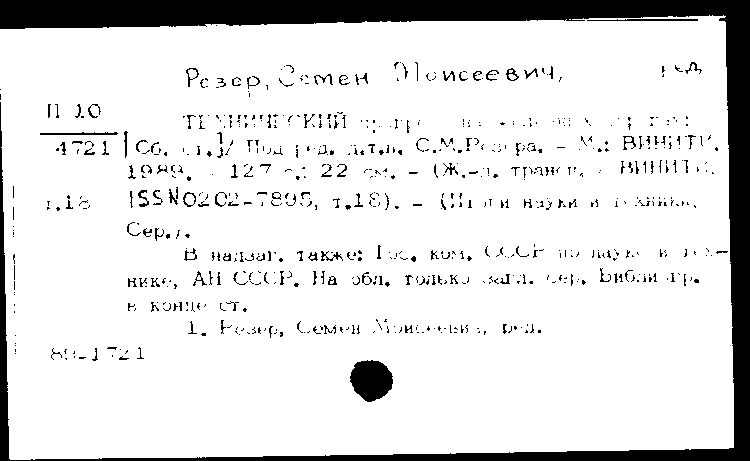 Резер, Семен Моисеевич, ред
П 10
ТЕХНИЧЕСКИЙ
4721 [Сб. ст.]/ Под ред. д.т.н. С.М.Резера. - М.: ВИНИТИ,
1989. - 127 с.; 22 см. - (Ж.-д. трансп. - ВИНИТИ,
т.18 ISSN0202-7895, т.18). - (Итоги науки и техники.
Сер.).
В надзаг. также: Гос. ком. СССР по науке и тех-
нике, АН СССР. На обл. только загл. сер. Библиогр.
в конце ст.
1. Резер, Семен Моисеевич, ред.
89-1721